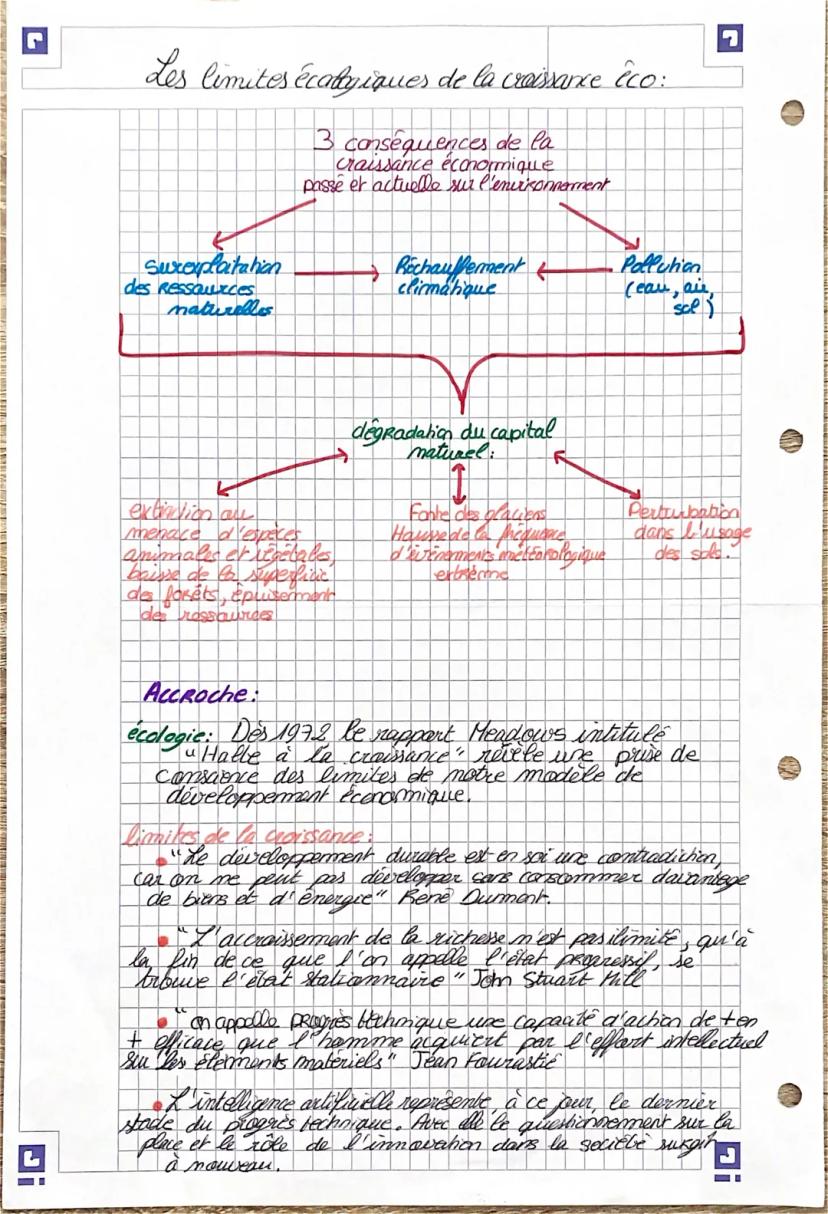 Les limites écologiques de la croissance éco:
3 conséquences de la
croissance économique
passé et actuelle sur l'environnement
Surexploitation
des Ressources
naturelles
Réchauffement
climatique
Pollution
(eau, air,
sol)
dégradation du capital
naturel:
extinction ou
menace d'espèces
animales et végétales,
baisse de la superficie
des forêts, épuisement
des ressources
Fonte des glaciers
Hausse de la fréquence
d'évènements météorologique
extrême
Perturbation
dans l'usage
des sols.
Accroche:
écologie: Dès 1972 le rapport Meadows intitulé
"Halte à la croissance" révèle une prise de
conscience des limites de notre modèle de
développement économique.
limites de la croissance:
• "Le développement durable est en soi une contradiction,
car on ne peut pas développer sans consommer davantage
de biens et d'énergie" René Dumont.
• "L'accroissement de la richesse n'est pas ilimité, qu'à
la fin de ce que l'on appelle l'état progressif, se
trouve l'état stationnaire" John Stuart Mill
• "on appelle progrès technique une capacité d'action de + en
+ efficace que l'homme acquiert par l'effort intellectuel
sur les élements matériels" Jean Fourastié
• L'intelligence artificielle représente, à ce jour, le dernier
stade du progrès technique. Avec elle le questionnement sur la
place et le rôle de l'innovation dans la société surgit
à nouveau.